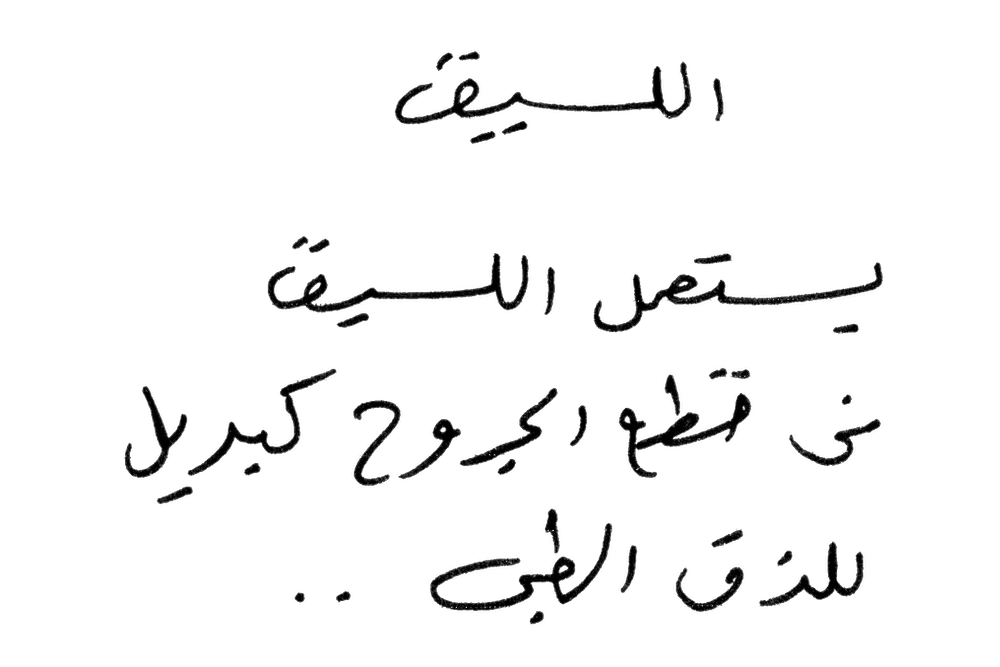 اللسيق
يستعمل اللسيق
في قطع الجروح كبديل
للزق الطبي ..